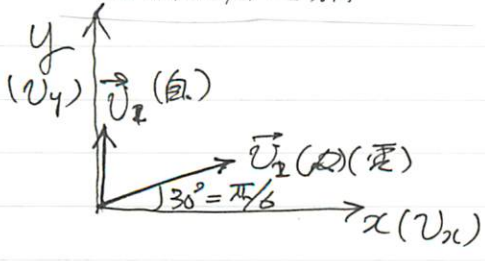 y
(v_y)
→v_1 (自)
→v_2 (電)
30° = π/6
x (v_x)